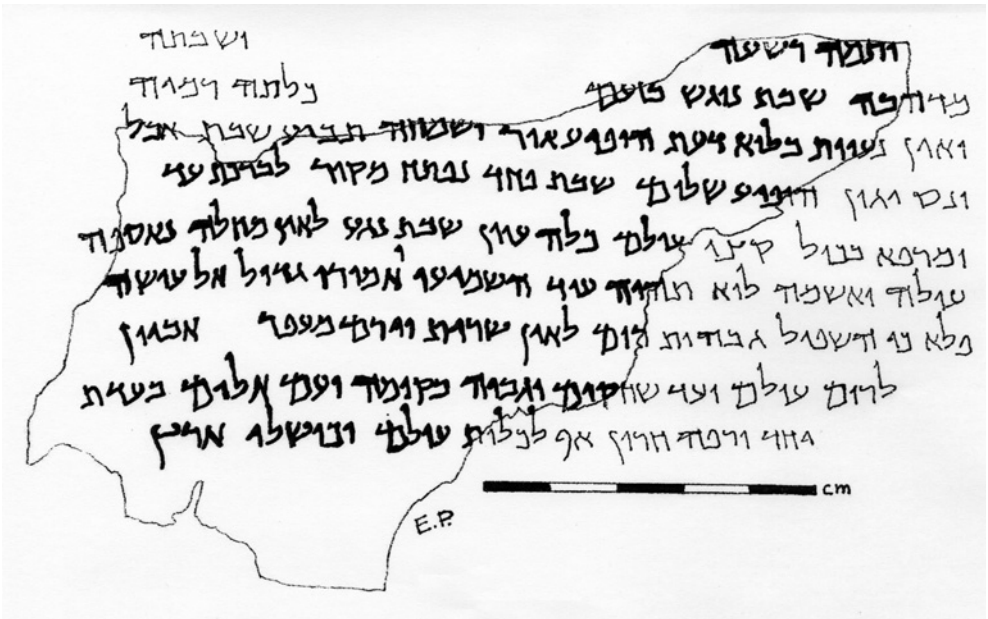 ותמה רשעה ושבתה
מדהבה שבת נוגש בזעם כלתה רמיה
ואין נעוות בלוא דעת הופיע אור ושמחה תביע שבת אבל
ונס יגון הופיע שלום שבת פחד נפתח מקור לברכת עד
ומרפא בכול קצי עולם כלה עוון שבת נגע לאין מחלה נאספה
עולה ואשמה לוא תהיה עוד השמיעו אמורו גדול אל עושה
פלא כי השפיל גבהות רום לאין שרית וירם מעפר אביון
לרום עולם ועד שחקים בקומה ועם בעדת
יחד ורפה חרון אף לכלות עולם וכושלי ארץ
cm
E.P.